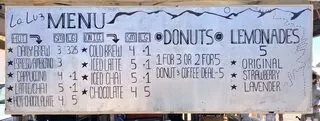 La Lu's MENU
HOT SM LG
DAIRY BREW 3 3.25
CAPPUCINO 4
HOT CHOCOLATE 4 5
COLD BREW 4 +1
ICED LATTE 5 +1
ICED CHAI 5 +1
CHOCOLATE 4 5
DONUTS
1 FOR 3 OR 2 FOR 5
DONUT & COFFEE DEAL - 5
LEMONADES
5
ORIGINAL
STRAWBERRY
LAVENDER